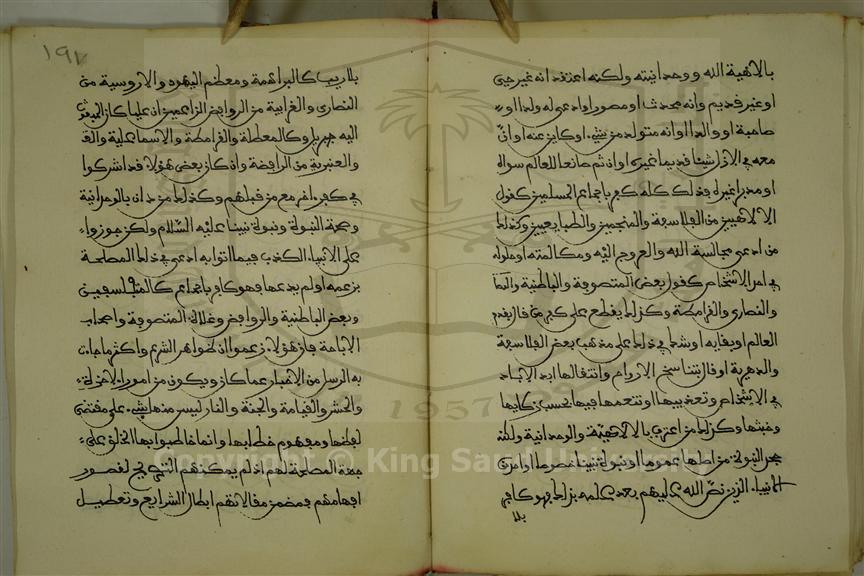 بالاهية الله ووحدانيته ولكنه اعتقد انه غير حي
او غير قديم وانه محدث او مصور او ادعى له ولدا او
صاحبة او والدا او انه متولد من شيء او كاين عنه او ان
معه في الازل شيئا قديما غيره او ان ثم صانعا للعالم سواه
او مدبرا غيره فذلك كله كفر باجماع المسلمين كقول
الالاهيين من الفلاسفة والمنجمين والطبايعيين وكذلك
من ادعى مجالسة الله والعروج اليه ومكالمته او حلوله
في احد الاشخاص كقول بعض المتصوفة والباطنية
والنصارى والقرامطة وكذلك يقطع على كفر من قال بقدم
العالم او بقايه او شك في ذلك على مذهب بعض الفلاسفة
والدهرية او قال بتناسخ الارواح وانتقالها ابد الاباد
في الاشخاص وتعذيبها او تنعمها فيها بحسب زكايها
وخبثها وكذلك من اعترف بالالاهية والوحدانية ولكنه
جحد النبوة من اصلها عموما او نبوة نبينا خصوصا او احد من
الانبياء الذين نص الله عليهم بعد علمه بذلك فهو كافر
بلا
١٩٧
بلا ريب كالبراهمة ومعظم اليهود والاروسية من
النصارى والغرابية من الروافض الزاعمين ان عليا كان المبعوث
اليه جبريل وكالمعطلة والقرامطة والاسماعلية
والعنبرية من الرافضة وان كان بعض هؤلاء قد اشركوا
في كفر اخر مع من قبلهم وكذلك من دان بالوحدانية
وصحة النبوة ونبوة نبينا عليه السلام ولكن جوزوا
على الانبياء الكذب فيما اتوا به ادعى في ذلك المصلحة
بزعمه او لم يدعها فهو كافر باجماع كالمتفلسفين
وبعض الباطنية والروافض وغلاة المتصوفة واصحاب
الاباحة فان هؤلاء زعموا ان ظواهر الشرع واكثر ما جاءت
به الرسل من الاخبار عما كان ويكون من امور الاخرة
والحشر والقيامة والجنة والنار ليس منها شيء على مقتضى
لفظها ومفهوم خطابها وانما خاطبوا بها الخلق على
جهة المصلحة لهم اذ لم يمكنهم التصريح لقصور
افهامهم فمضمن مقالاتهم ابطال الشرايع وتعطيل
Copyright © King Saud University
1957